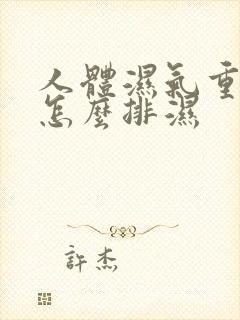 人體濕氣重
怎麼排濕
許杰